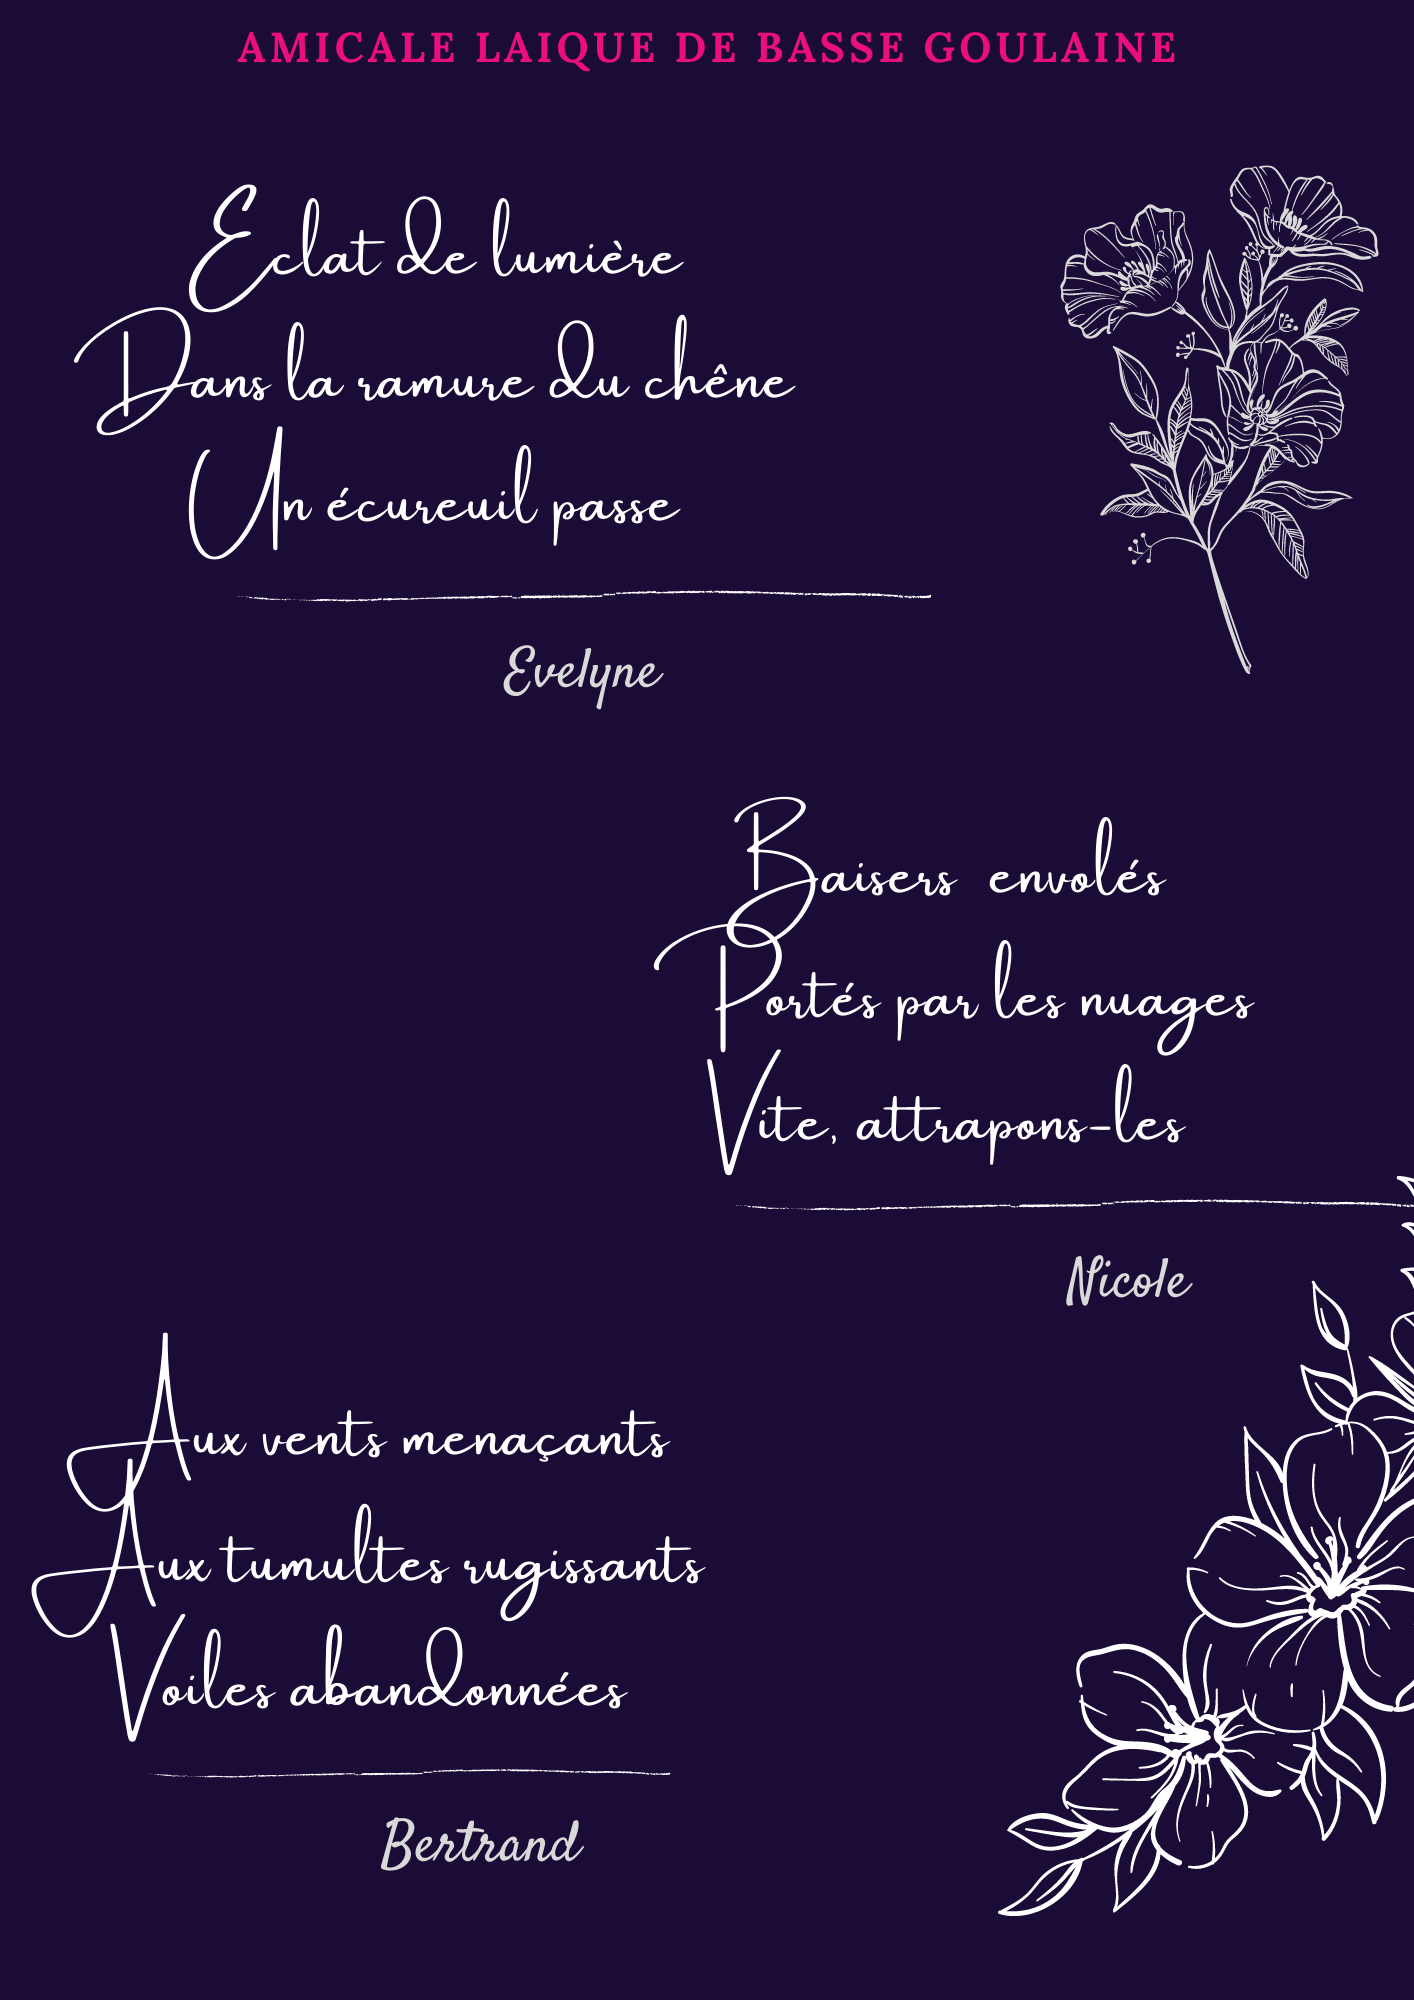 AMICALE LAIQUE DE BASSE GOULAINE
Eclat de lumière
Dans la ramure du chêne
Un écureuil passe
Evelyne
Baisers envolés
Portés par les nuages
Vite, attrapons-les
Nicole
Aux vents menaçants
Aux tumultes rugissants
Voiles abandonnées
Bertrand